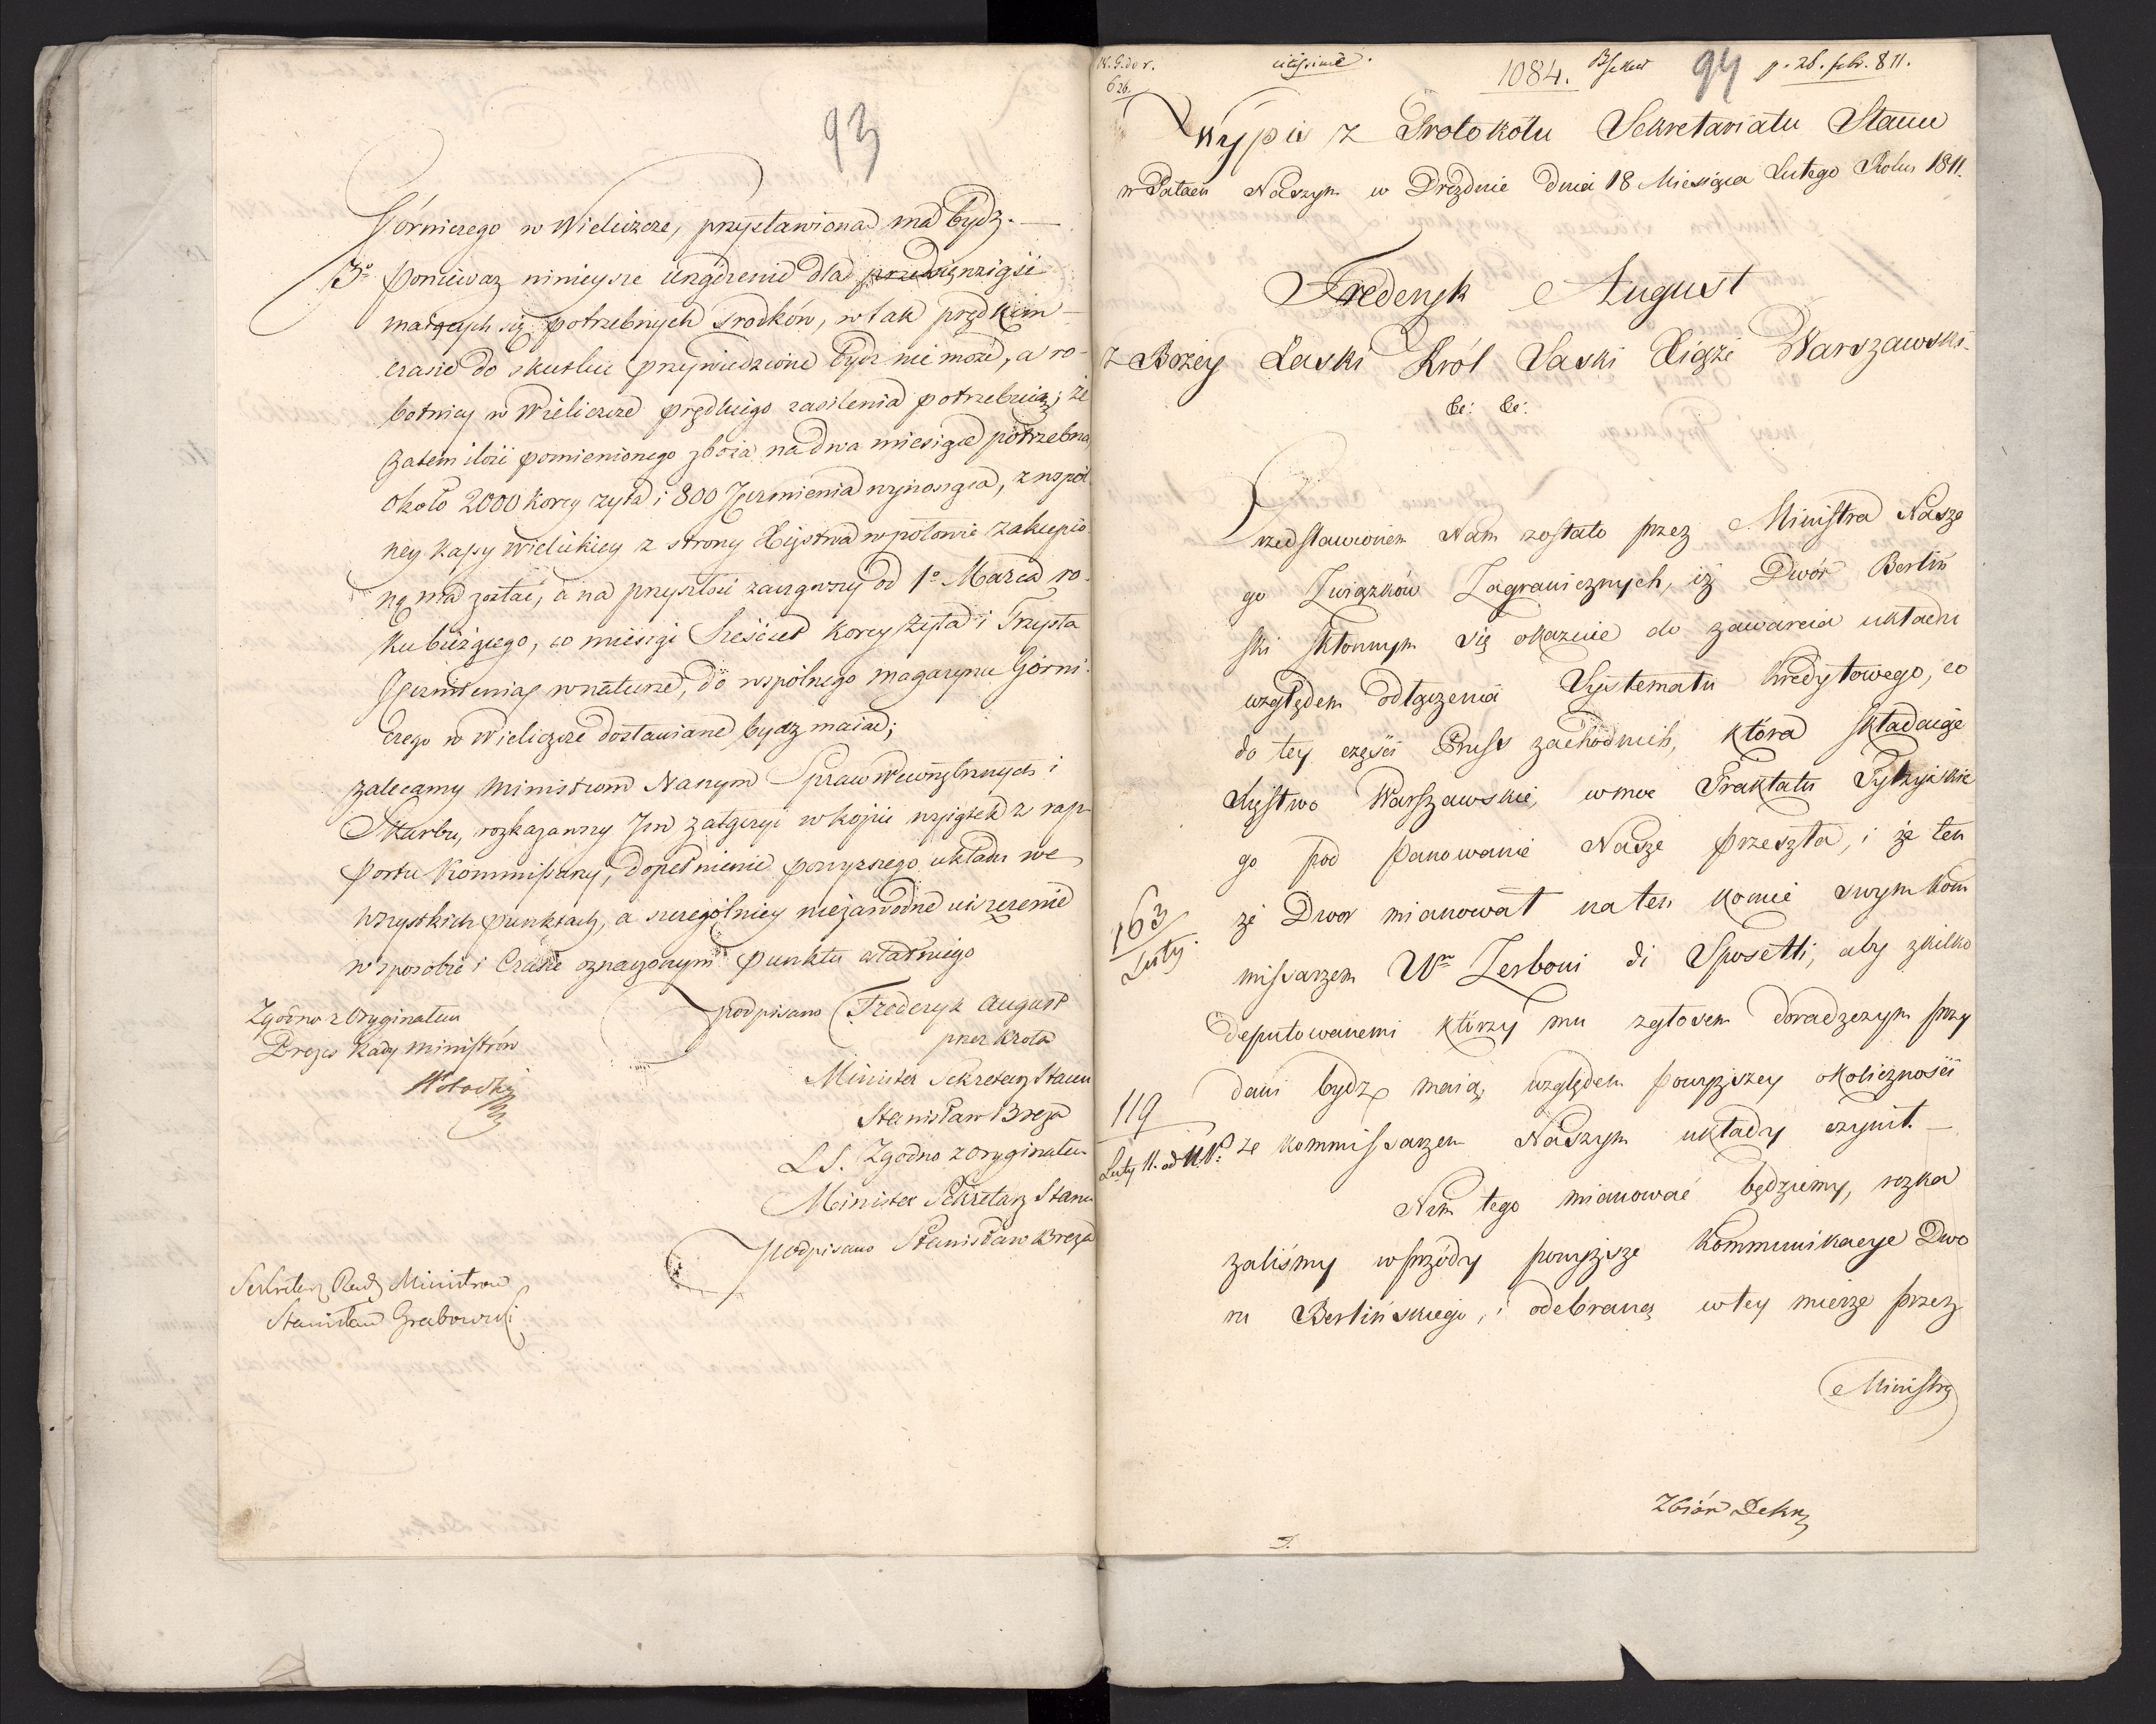 93
Górniczego w Wieliczce, przystawiona ma bydź. —
3° ponieważ ninieysze urządzenie dla przedsięwziąść
maiących się potrzebnych srodków, w tak prędkim
czasie do skutku przywiedzione bydź nie może, a ro-
botnicy w Wieliczce prędkiego zasilenia potrzebuią; że
zatem ilość pomienionego zboża na dwa miesiące potrzebna,
około 2000 korcy żyta i 800 Jęczmienia wynosząca, z wspól
ney kassy wielickiey z strony Xięstwa w połowie zakupio
ną ma zostać, a na przyszłość zacząwszy od 1° Marca ro-
ku bieżącego, co miesiąc Sześćset korcy żyta i Trzysta
Jęczmienia w naturze, do wspólnego magazynu Górni-
czego w Wieliczce dostawiane bydź maią;
zalecamy Ministrom Naszym Spraw Wewnętrznych i
Skarbu, rozkazawszy Im załączyć w kopii wyiątek z rap-
portu Kommissarzy, dopełnienie powyższego układu we
wszystkich punktach, a szczególniey niezawodne uiszczenie
w sposobie i Czasie oznaczonym punktu ostatniego
Zgodno z Oryginałem
Prezes Rady Ministrów
podpisano Frederyk August
przez Króla
Minister Sekretarz Stanu
Stanisław Breza
L S. Zgodno z oryginałem
Minister Sekretarz Stanu
podpisano Stanisław Breza
Sekretarz Rady Ministrow
Stanisław Grabowski
1084. 94 p. 26. febr. 811.
626.
Wypis z Protokołu Sekretariatu Stanu
w Pałacu Naszym w Dreznie dnia 18 Miesiąca Lutego Roku 1811.
Frederyk August
z Bożey Łaski Król Saski Xiąże Warszawski
&c: &c:
Przedstawionem Nam zostało przez Ministra Nasze
go Związków Zagranicznych, iż Dwór Berliń
ski skłonnym się okazuie do zawarcia układu
względem odłączenia Systematu kredytowego, co
do tey części Pruss zachodnich, która składaiąc
Xięstwo Warszawskie, w moc Traktatu Tylżyckie
go pod panowanie Nasze przeszła, i że ten
że Dwor mianował na ten koniec swym Kom
missarzem Wn Zerboni di Sposetti, aby z kilko
deputowanemi którzy mu z głosem doradczym przy
dani bydź maią, względem powyższey okoliczności
ze kommissarzem Naszym układy czynił. —
163
Luty
119
Luty 11.
Nim tego mianować będziemy, rozka
zaliśmy wprzódy powyższe kommunikacye Dwo
ru Berlińskiego, i odebraną w tey mierze przez
Ministra
Zbiór Dekr